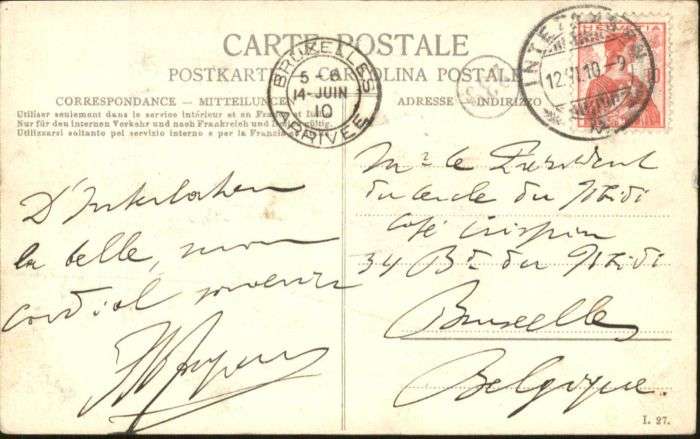 CARTE POSTALE
POSTKARTE CARTOLINA POSTALE
CORRESPONDANCE – MITTEILUNGEN
ADRESSE – INDIRIZZO
Utiliser seulement dans le service intérieur et en France et
Nur für den internen Verkehr und nach Frankreich und gültig.
Utilizzarsi soltanto pel servizio interno e per la Francia
BRUXELLES
5 – 6
14-JUIN
10
ARRIVEE
INTERLAKEN
12.VI.10.-9
HELVETIA
D'Interlaken
la belle, mon
cordial souvenir
Mr le Président
du cercle du Midi
Café Crispin
34 Bd. du Midi
Bruxelles
Belgique.
I. 27.